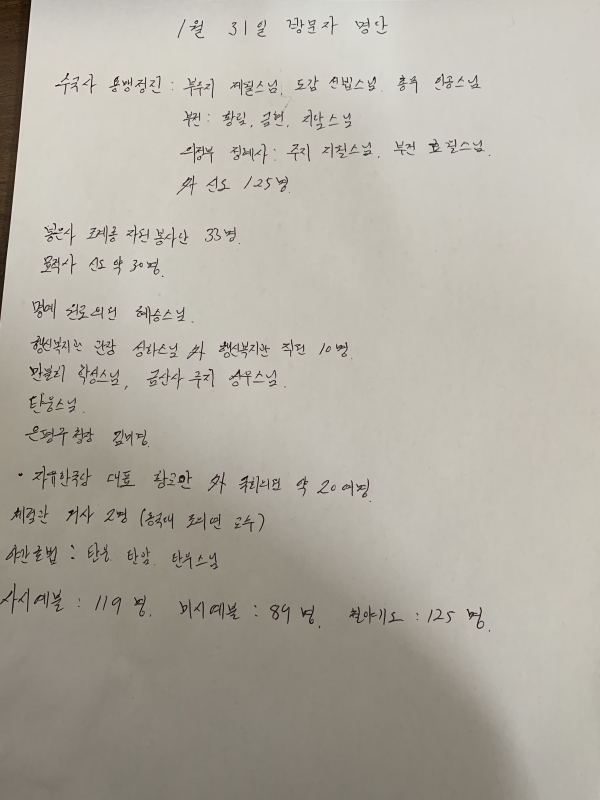 1월 31일 방문자 명단
수국사 용맹정진 : 부주지 스님, 도감 스님. 인공스님
부전 : 스님
의정부 : 주지 지필스님, 부전 효필스님.
외 신도 125명.
봉은사 조계종 자원봉사단 33명.
신도 약 30명.
명예 원로의원 혜승스님.
행신복지관 관장 성화스님 외 행신복지관 직원 10명.
학성스님, 금산사 주지 스님.
탄웅스님.
은평구청장 김미경.
· 자유한국당 대표 황교안 외 국회의원 약 20여명.
의사 2명 (동국대 교수)
야간 : 탄암. 탄우스님
사시예불 : 119명. 미시예불 : 89명. 철야기도 : 125명.